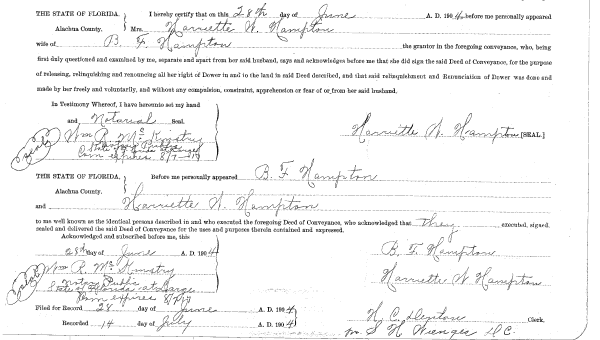 THE STATE OF FLORIDA. I hereby certify that on this 28th day of June A. D. 1904, before me personally appeared
Alachua County. Mrs. Harriette W. Hampton
wife of B. F. Hampton the grantor in the foregoing conveyance, who, being
first duly questioned and examined by me, separate and apart from her said husband, says and acknowledges before me that she did sign the said Deed of Conveyance, for the purpose
of releasing, relinquishing and renouncing all her right of Dower in and to the land in said Deed described, and that said relinquishment and Renunciation of Dower was done and
made by her freely and voluntarily, and without any compulsion, constraint, apprehension or fear of or from her said husband.
In Testimony Whereof, I have hereunto set my hand
and Notarial Seal.
Wm R. McKinstry Harriette W. Hampton [SEAL.]
Notary Public
State of Florida at Large
Com expires 8/7
THE STATE OF FLORIDA. Before me personally appeared B. F. Hampton
Alachua County.
and Harriette W. Hampton
to me well known as the identical persons described in and who executed the foregoing Deed of Conveyance, who acknowledged that they executed, signed,
sealed and delivered the said Deed of Conveyance for the uses and purposes therein contained and expressed.
Acknowledged and subscribed before me, this
28th day of June A. D. 1904 B. F. Hampton
Wm R. McKinstry Harriette W Hampton
Notary Public
State of Florida at Large
Com expires 8/7
Filed for Record 28 day of June A. D. 1904 H. C. Denton Clerk.
Recorded 14 day of July A. D. 1904 per S. H. Wienges D.C.